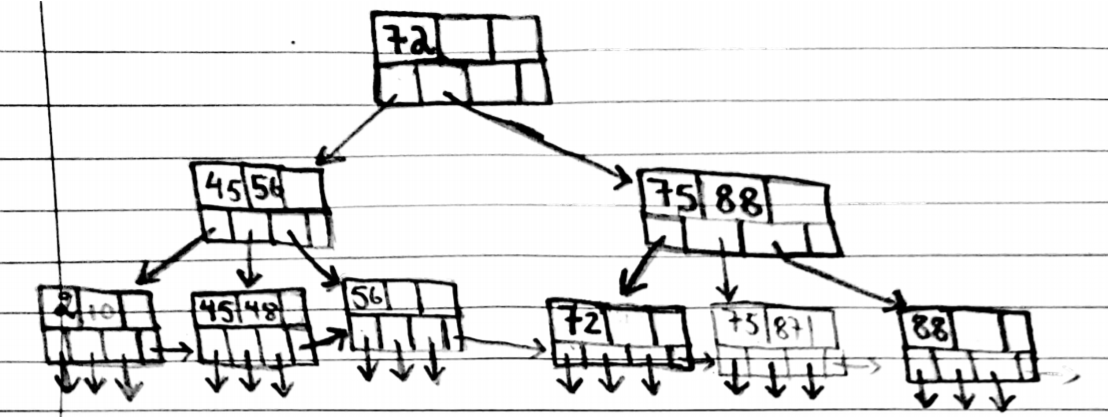 72
45 56
75 88
2 10
45 48
56
72
75 87
88